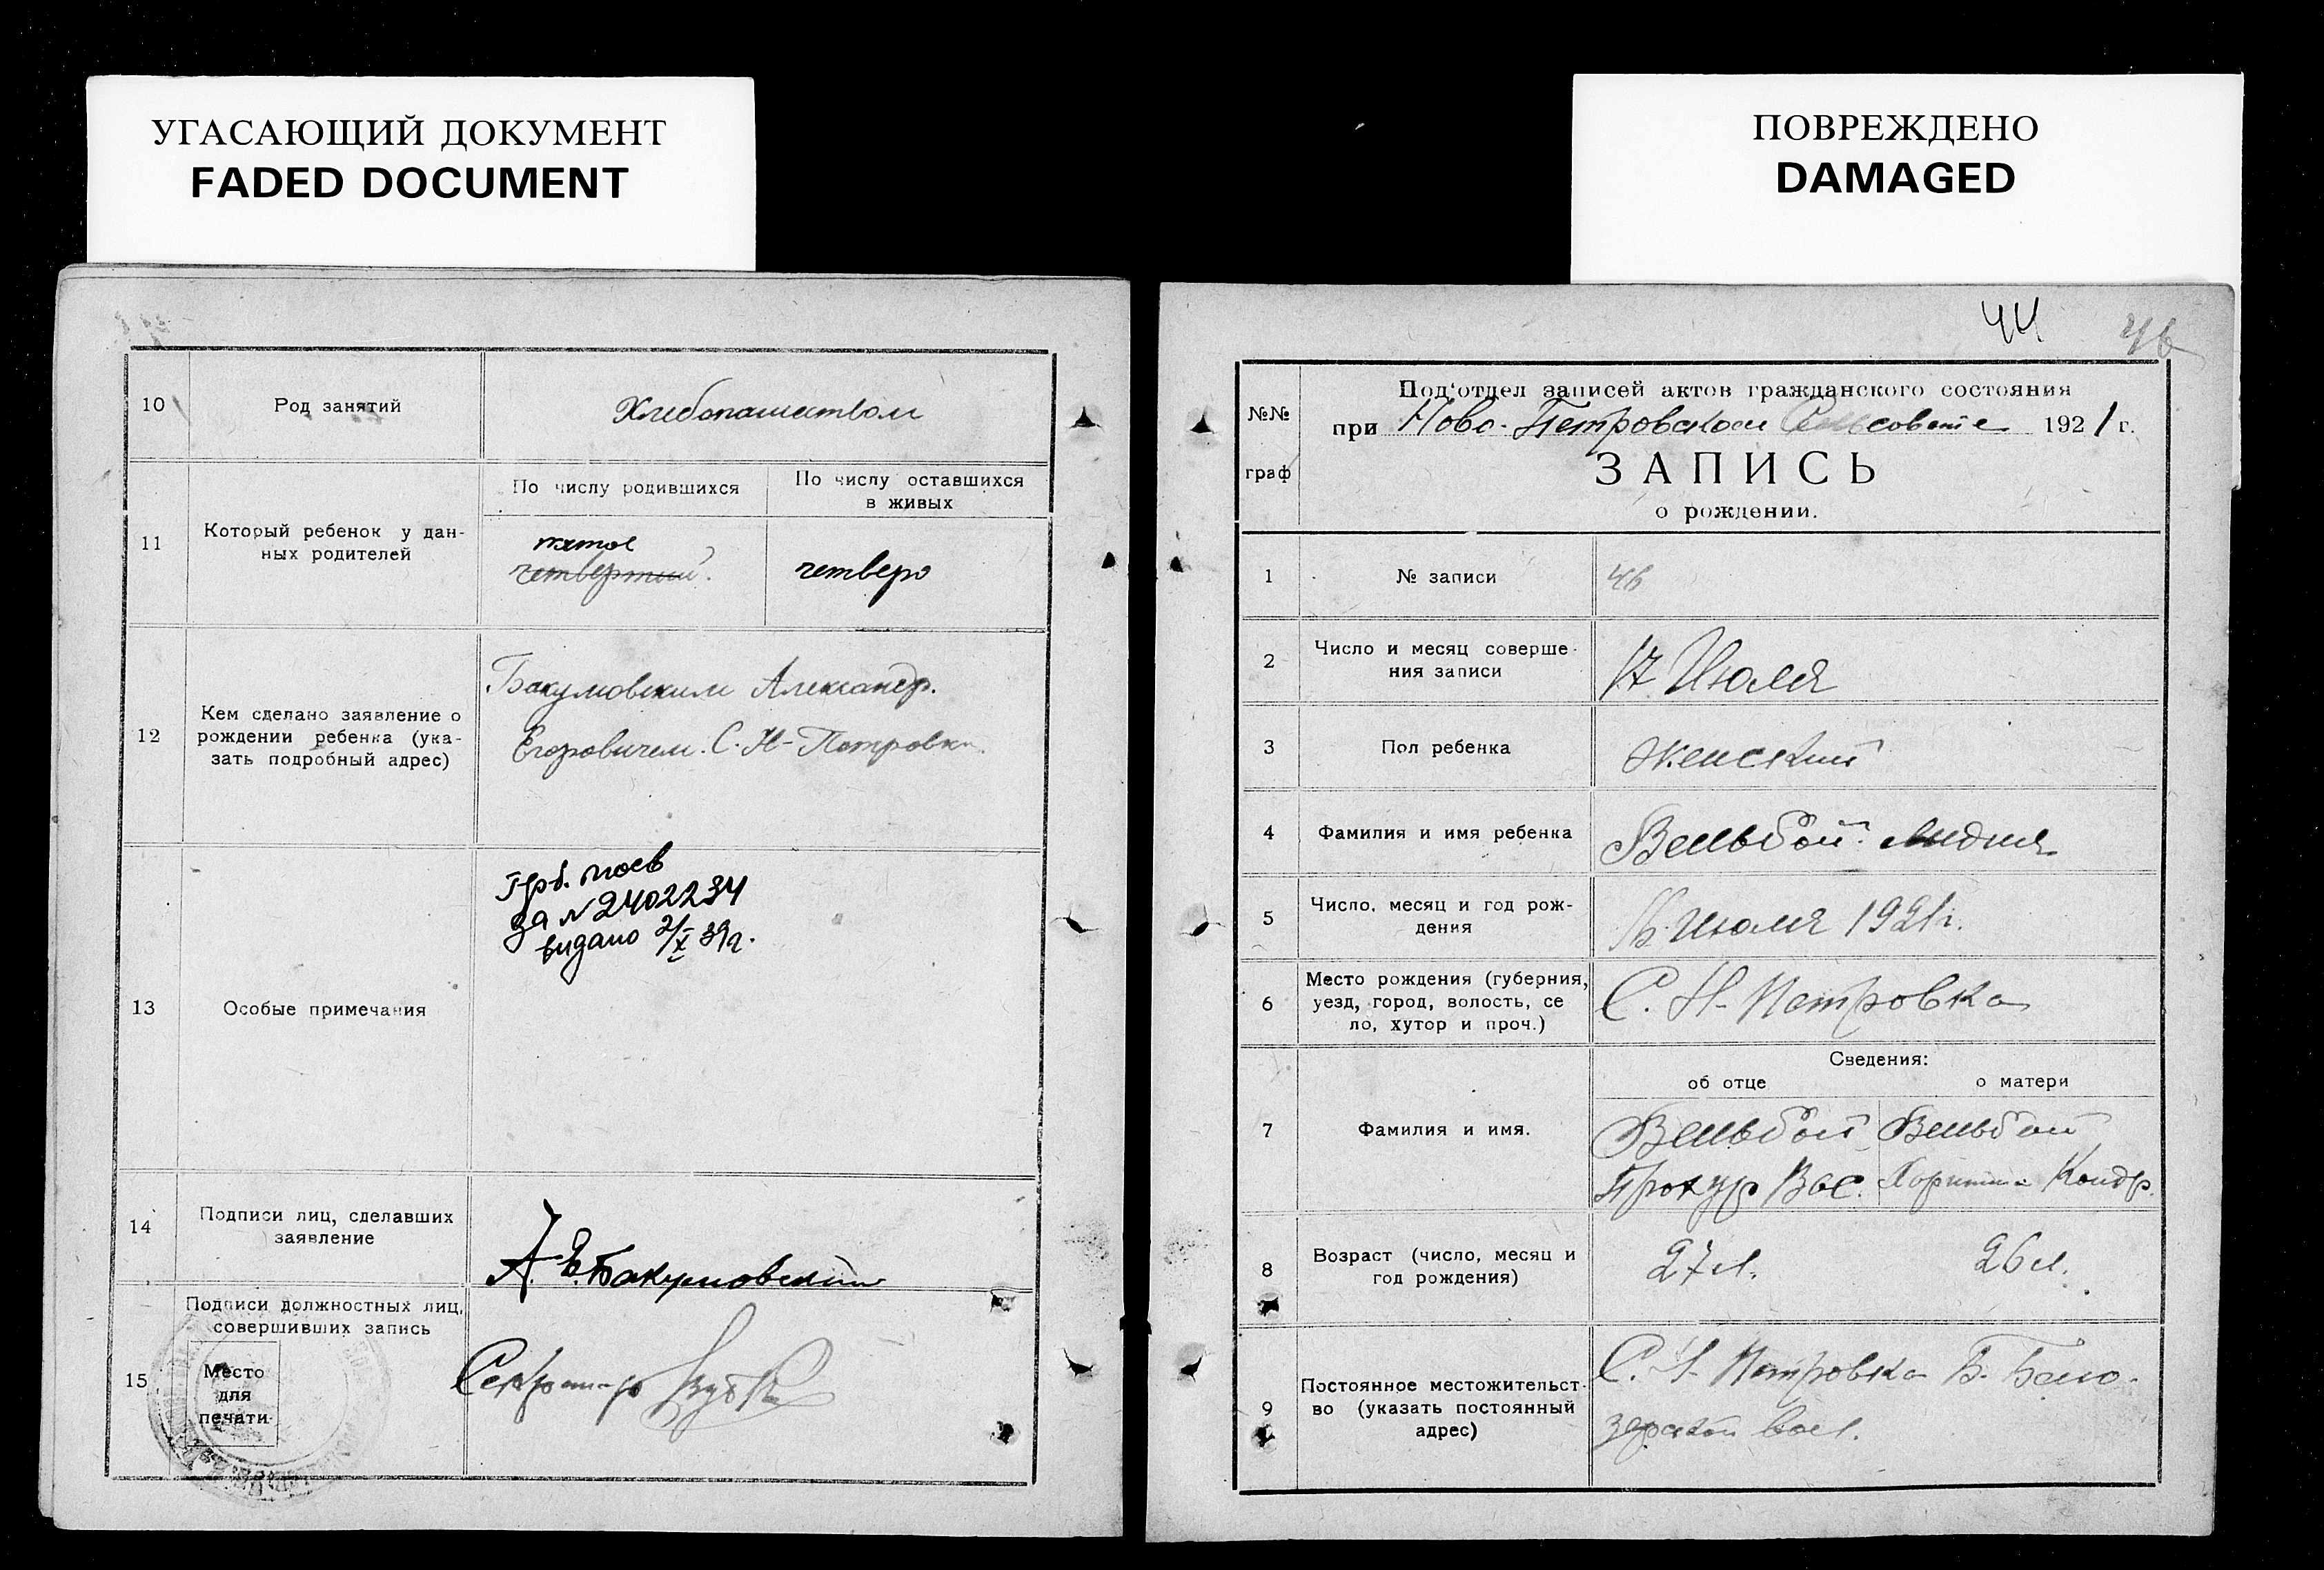 УГАСАЮЩИЙ ДОКУМЕНТ
FADED DOCUMENT
10
Род занятий
Хлебопашеством
11
Который ребенок у дан-
ных родителей
По числу родившихся
По числу оставшихся
в живых
пятое
четвертый.
четверо
12
Кем сделано заявление о
рождении ребенка (ука-
зать подробный адрес)
Бакумовским Александр.
Егоровичем. С. Н-Петровка.
13
Особые примечания
за № 2402234
видано 2/X 39г.
14
Подписи лиц, сделавших
заявление
А. Е. Бакумовский
15
Подписи должностных лиц,
совершивших запись
Место
для
печати
Секретарь
ПОВРЕЖДЕНО
DAMAGED
44
46
№№
граф
Под'отдел записей актов гражданского состояния
при Ново-Петровском Сельсовете 1921 г.
ЗАПИСЬ
о рождении.
1
№ записи
46
2
Число и месяц соверше-
ния записи
17 Июля
3
Пол ребенка
Женский
4
Фамилия и имя ребенка
Вельбой Лидия
5
Число, месяц и год рож-
дения
Июля 1921г.
6
Место рождения (губерния,
уезд, город, волость, се
ло, хутор и проч.)
С. Н-Петровка
7
Фамилия и имя.
Сведения:
об отце
о матери
Вельбой
Прохур Вас.
Вельбой
Кондр.
8
Возраст (число, месяц и
год рождения)
27 л.
26 л.
9
Постоянное местожительст-
во (указать постоянный
адрес)
С. Н-Петровка Б. Бело-
зерской вол.